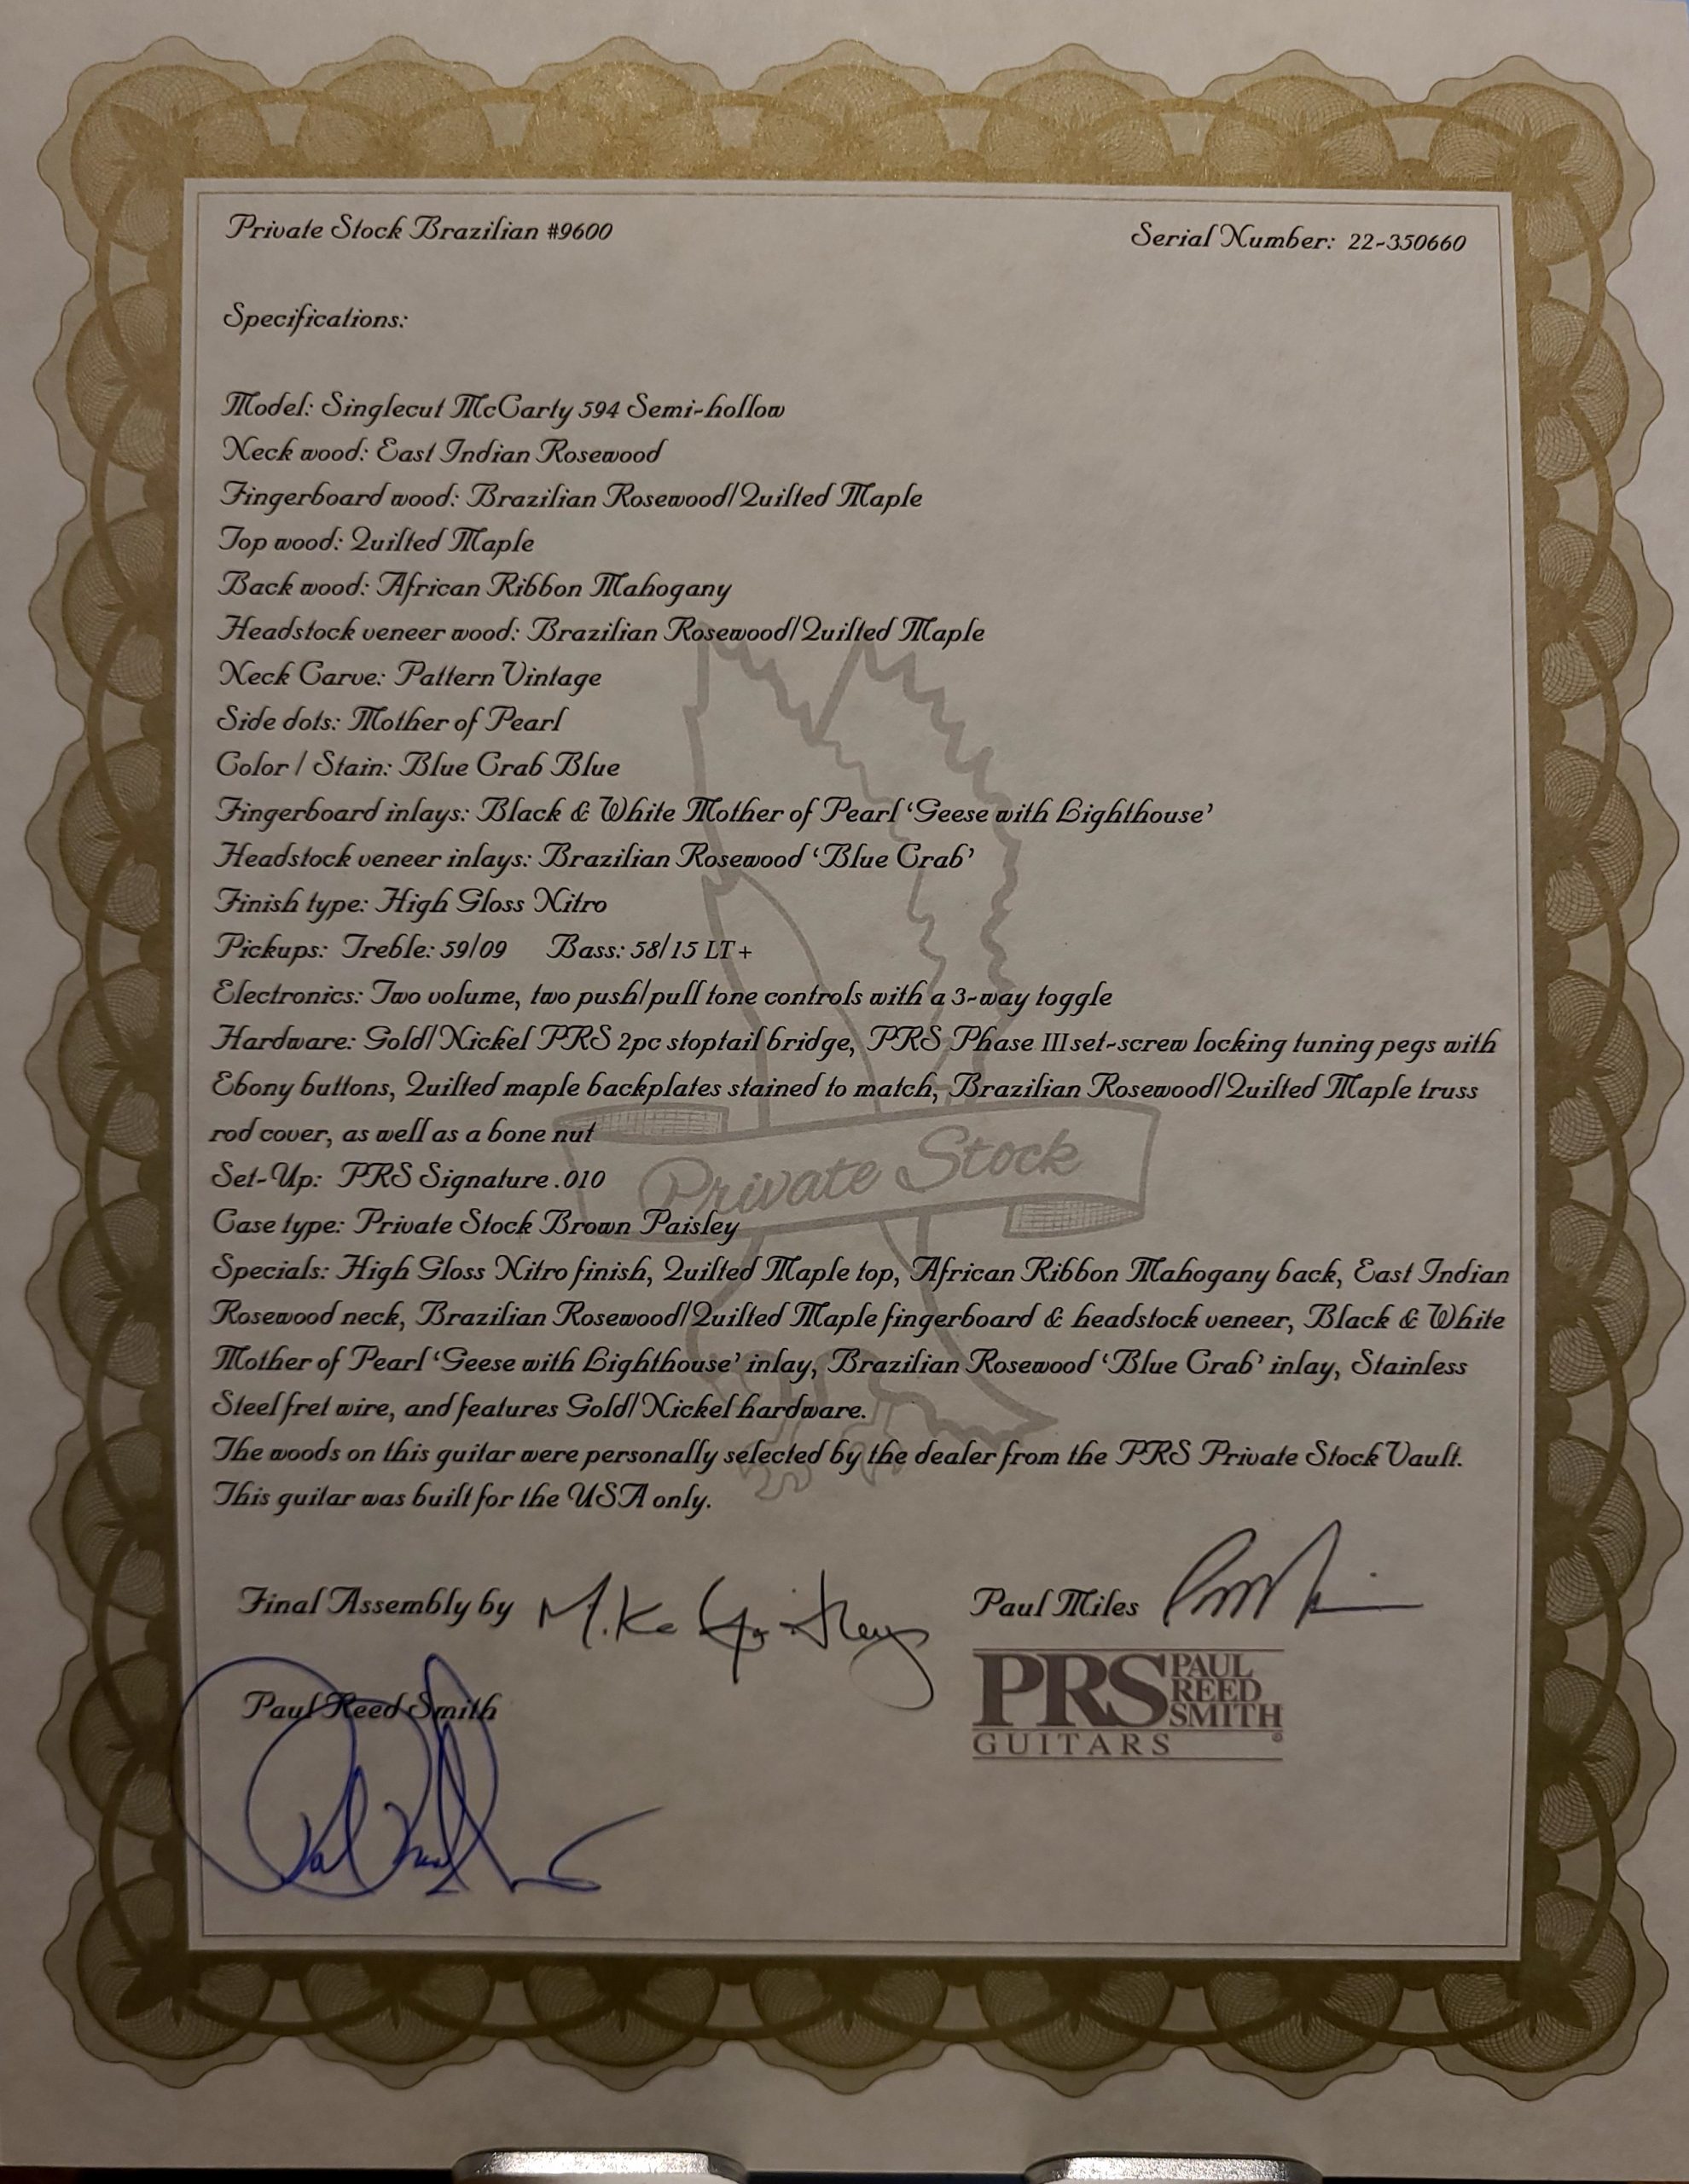 Private Stock Brazilian #9600
Serial Number: 22-350660
Specifications:
Model: Singlecut McCarty 594 Semi-hollow
Neck wood: East Indian Rosewood
Fingerboard wood: Brazilian Rosewood/Quilted Maple
Top wood: Quilted Maple
Back wood: African Ribbon Mahogany
Headstock veneer wood: Brazilian Rosewood/Quilted Maple
Neck Carve: Pattern Vintage
Side dots: Mother of Pearl
Color / Stain: Blue Crab Blue
Fingerboard inlays: Black & White Mother of Pearl ‘Geese with Lighthouse’
Headstock veneer inlays: Brazilian Rosewood ‘Blue Crab’
Finish type: High Gloss Nitro
Pickups: Treble: 59/09 Bass: 58/15 LT+
Electronics: Two volume, two push/pull tone controls with a 3-way toggle
Hardware: Gold/Nickel PRS 2pc stoptail bridge, PRS Phase III set-screw locking tuning pegs with
Ebony buttons, Quilted maple backplates stained to match, Brazilian Rosewood/Quilted Maple truss
rod cover, as well as a bone nut
Private Stock
Set-Up: PRS Signature .010
Case type: Private Stock Brown Paisley
Specials: High Gloss Nitro finish, Quilted Maple top, African Ribbon Mahogany back, East Indian
Rosewood neck, Brazilian Rosewood/Quilted Maple fingerboard & headstock veneer, Black & White
Mother of Pearl ‘Geese with Lighthouse’ inlay, Brazilian Rosewood ‘Blue Crab’ inlay, Stainless
Steel fret wire, and features Gold/Nickel hardware.
The woods on this guitar were personally selected by the dealer from the PRS Private Stock Vault.
This guitar was built for the USA only.
Final Assembly by Mike
Paul Miles
Paul Reed Smith
PRS PAUL REED SMITH
GUITARS